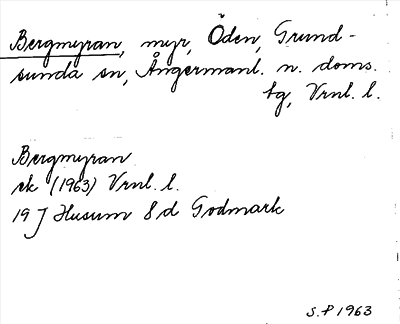 Bergmyran, myr, Öden, Grund-
sunda sn, Ångermanl. n. doms.
tg, Vrnl. l.
Bergmyran
ek (1963) Vrnl. l.
19 J Husum 8 d Godmark
S.P 1963